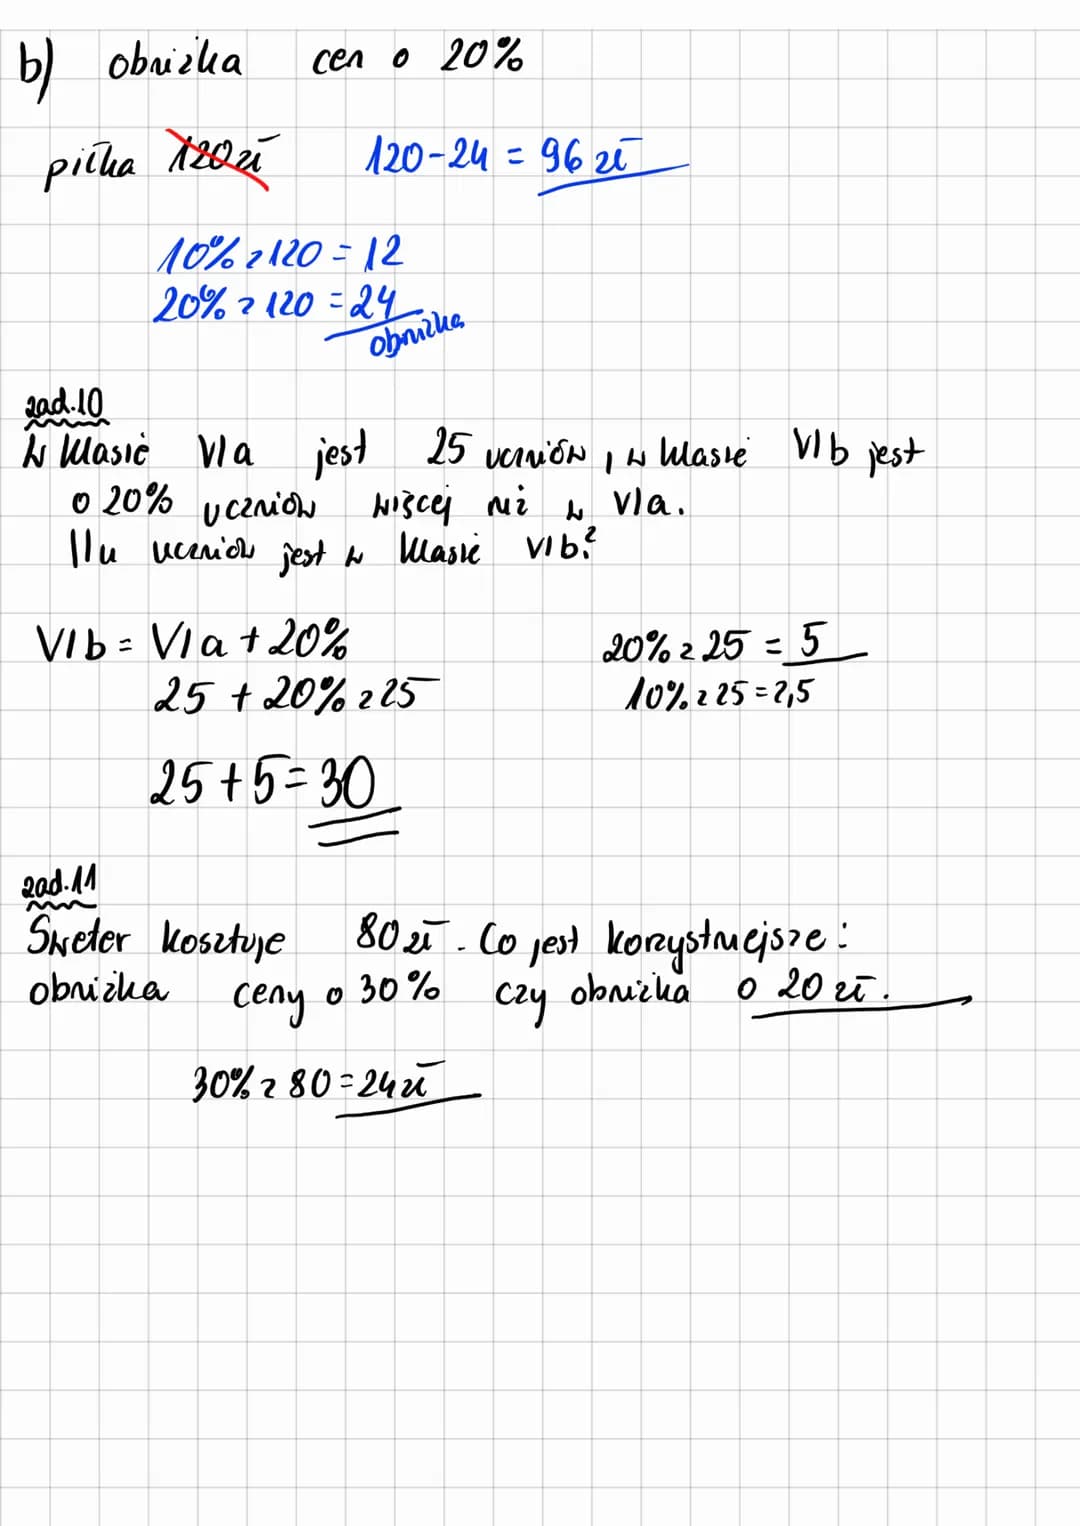 b) obniżka cen o 20%
piłka 120 zł 120-24 = 96 zł
10% z 120 = 12
20% z 120 = 24
obniżka
zad.10
W klasie VIa jest 25 uczniów, w klasie VIb jest
o 20% uczniów więcej niż w VIa.
Ilu uczniów jest w klasie VIb?
VIb = VIa + 20% 20% z 25 = 5
25 + 20% z 25 10% z 25 = 2,5
25 + 5 = 30
zad.11
Sweter kosztuje 80 zł. Co jest korzystniejsze:
obniżka ceny o 30% czy obniżka o 20 zł.
30% z 80 = 24 zł